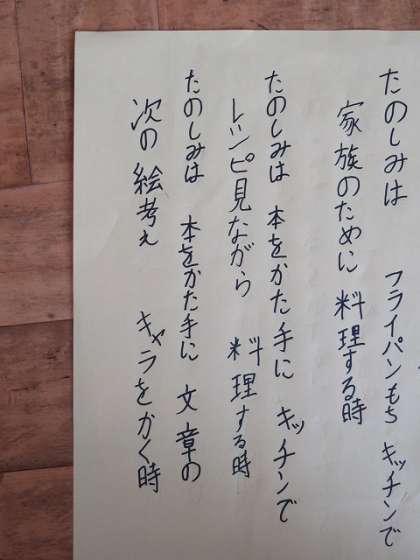 たのしみは フライパンもち キッチンで
家族のために 料理する時
たのしみは 本をかた手に キッチンで
レシピ見ながら 料理する時
たのしみは 本をかた手に 文章の
次の絵考え キャラをかく時